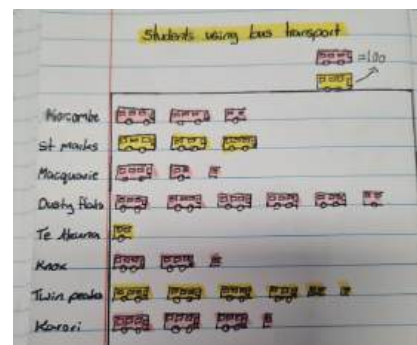 Students using bus transport
=100
St Marks
Macquarie
Dusty flats
Knox
Twin peaks
Karori